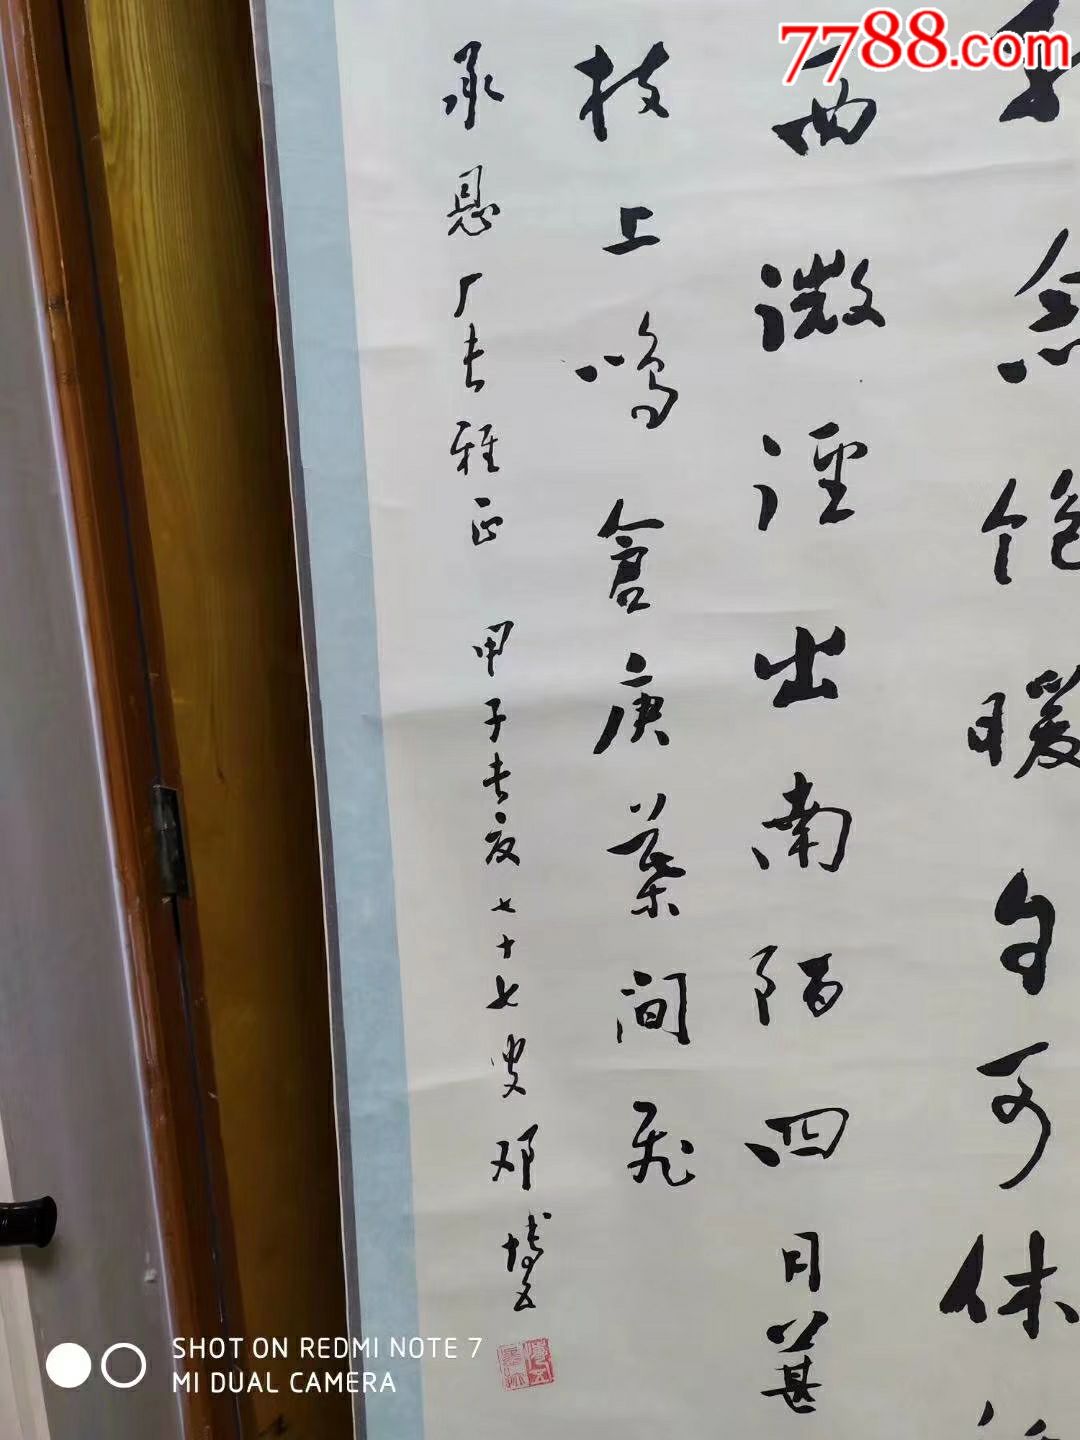 7788.com
念饱暖自可休
雨微涇出南陌四月葚
枝上鸣倉庚葉间飛
承恩厂长雅正 甲子长夜七十七叟邓博五
SHOT ON REDMI NOTE 7
MI DUAL CAMERA